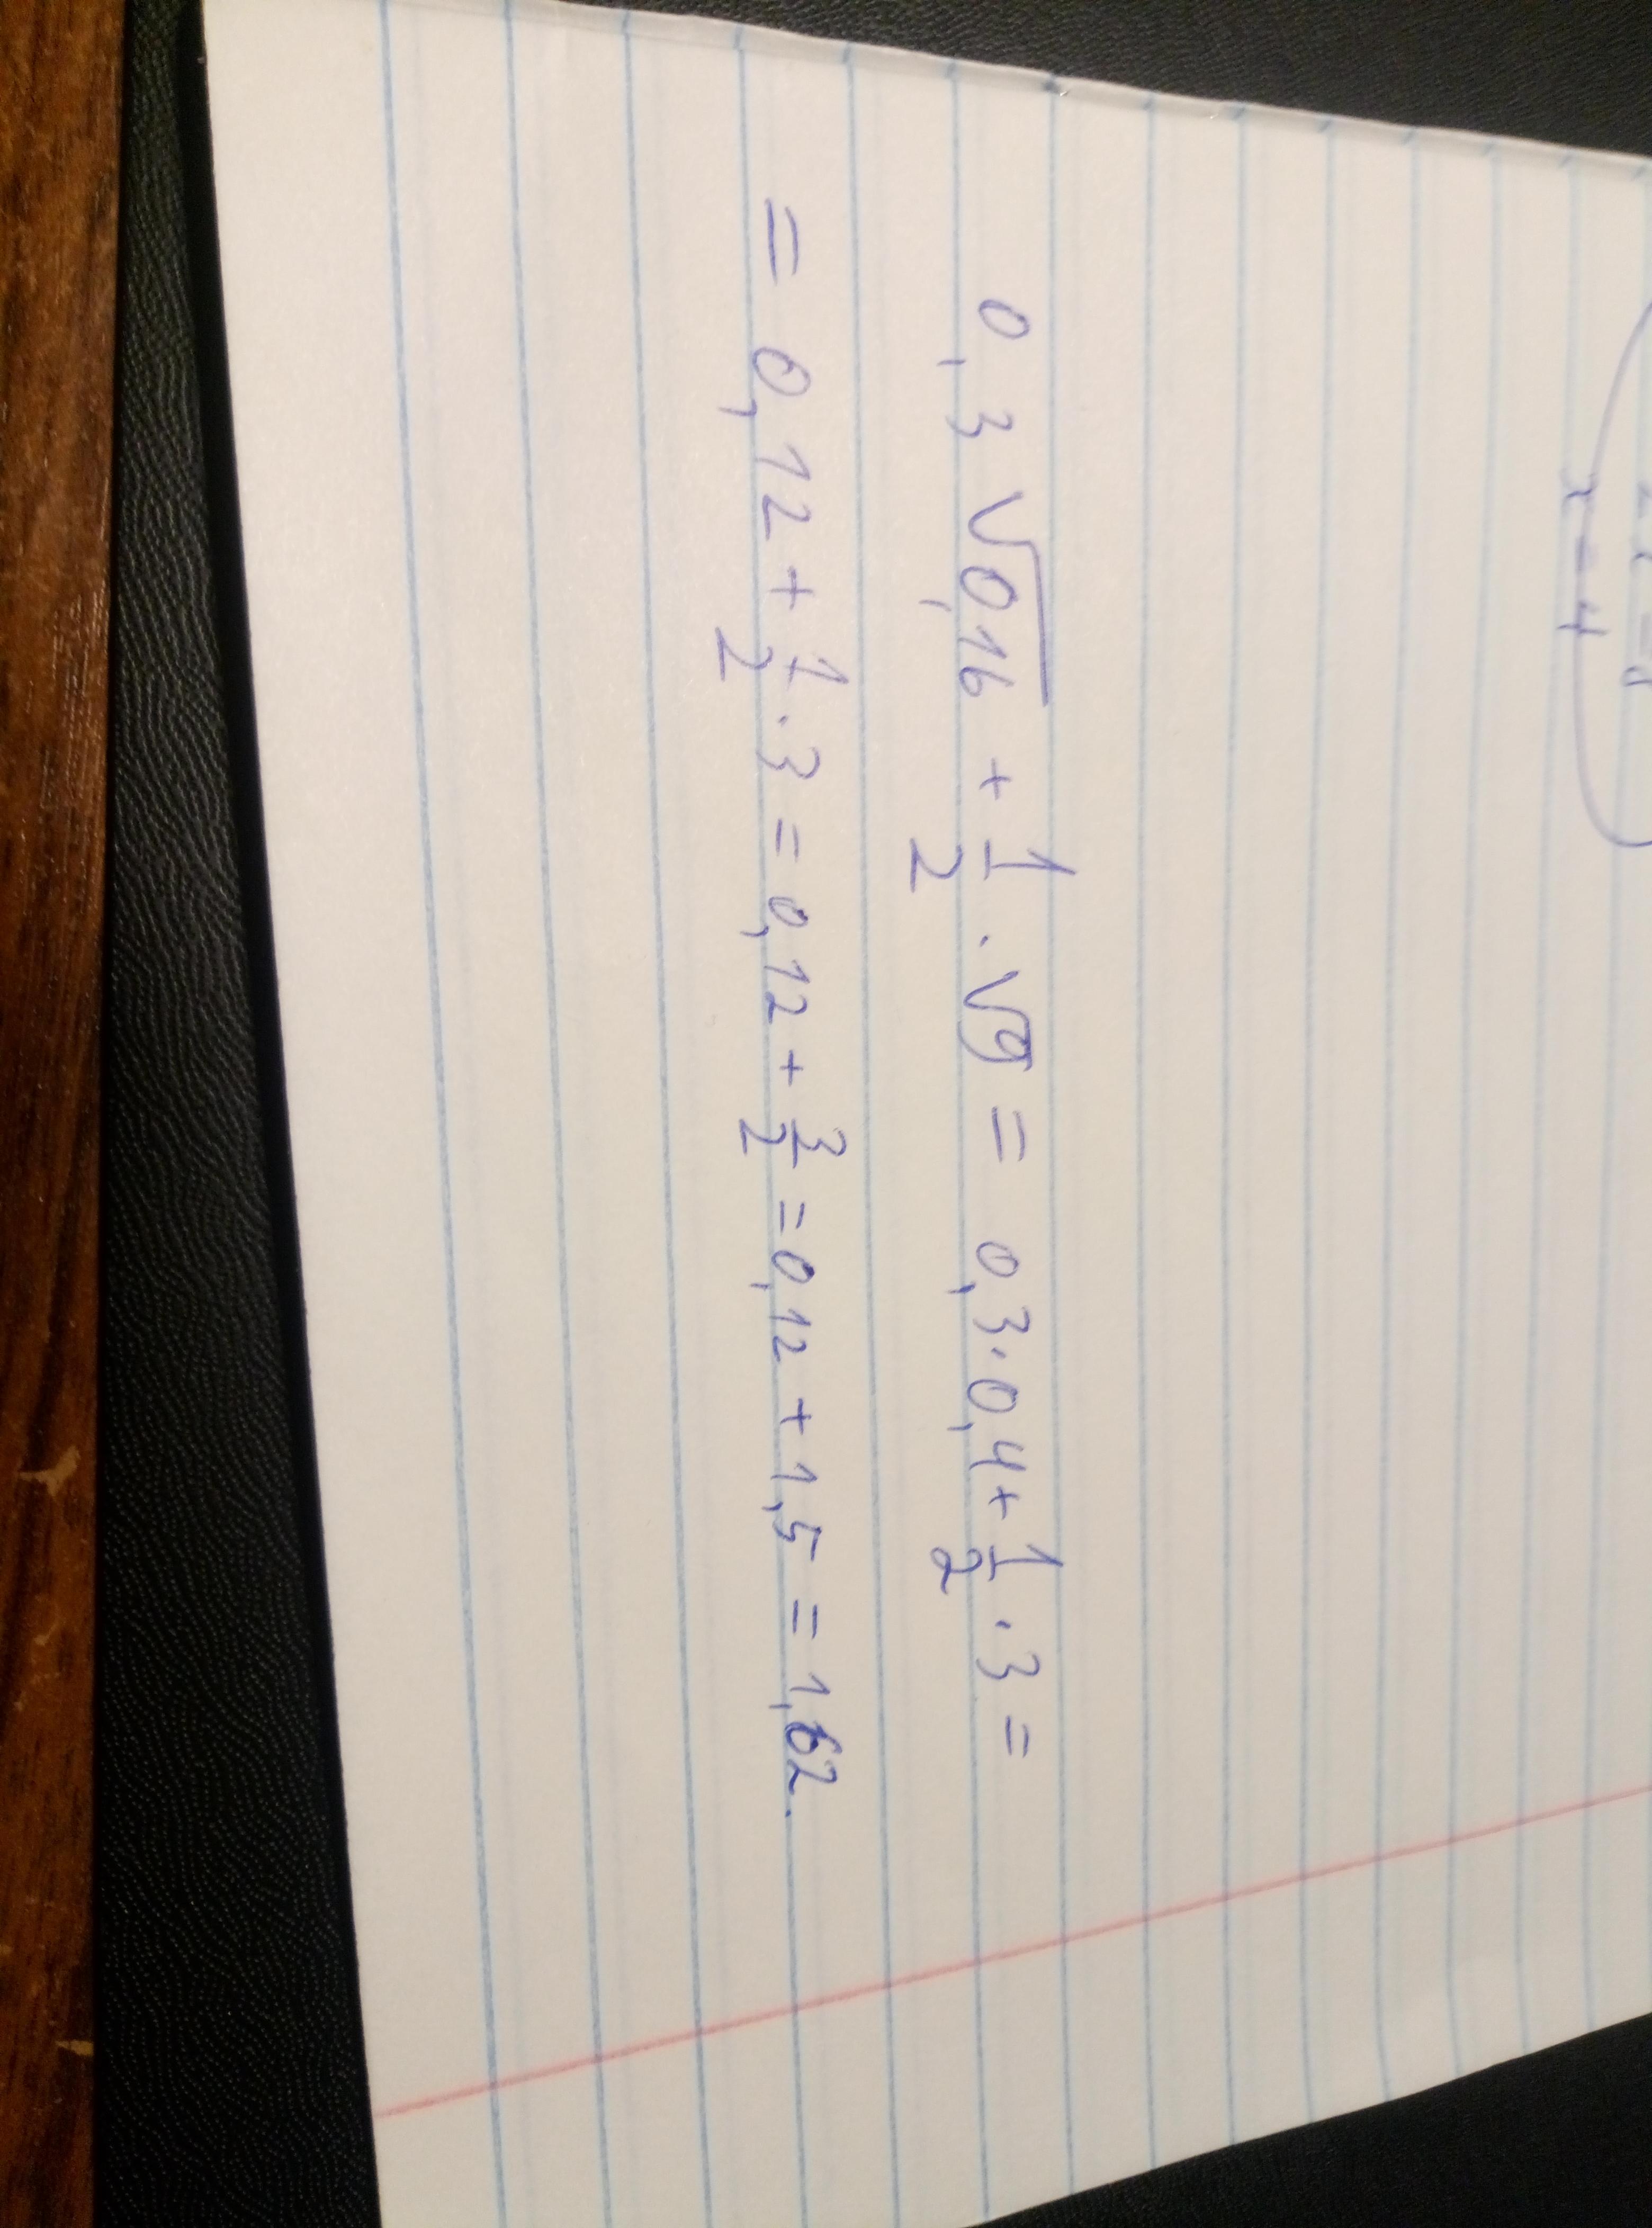 x = 4
0,3 √0,16 + 1/2 · √9 = 0,3 · 0,4 + 1/2 · 3 =
= 0,12 + 1/2 · 3 = 0,12 + 3/2 = 0,12 + 1,5 = 1,62.